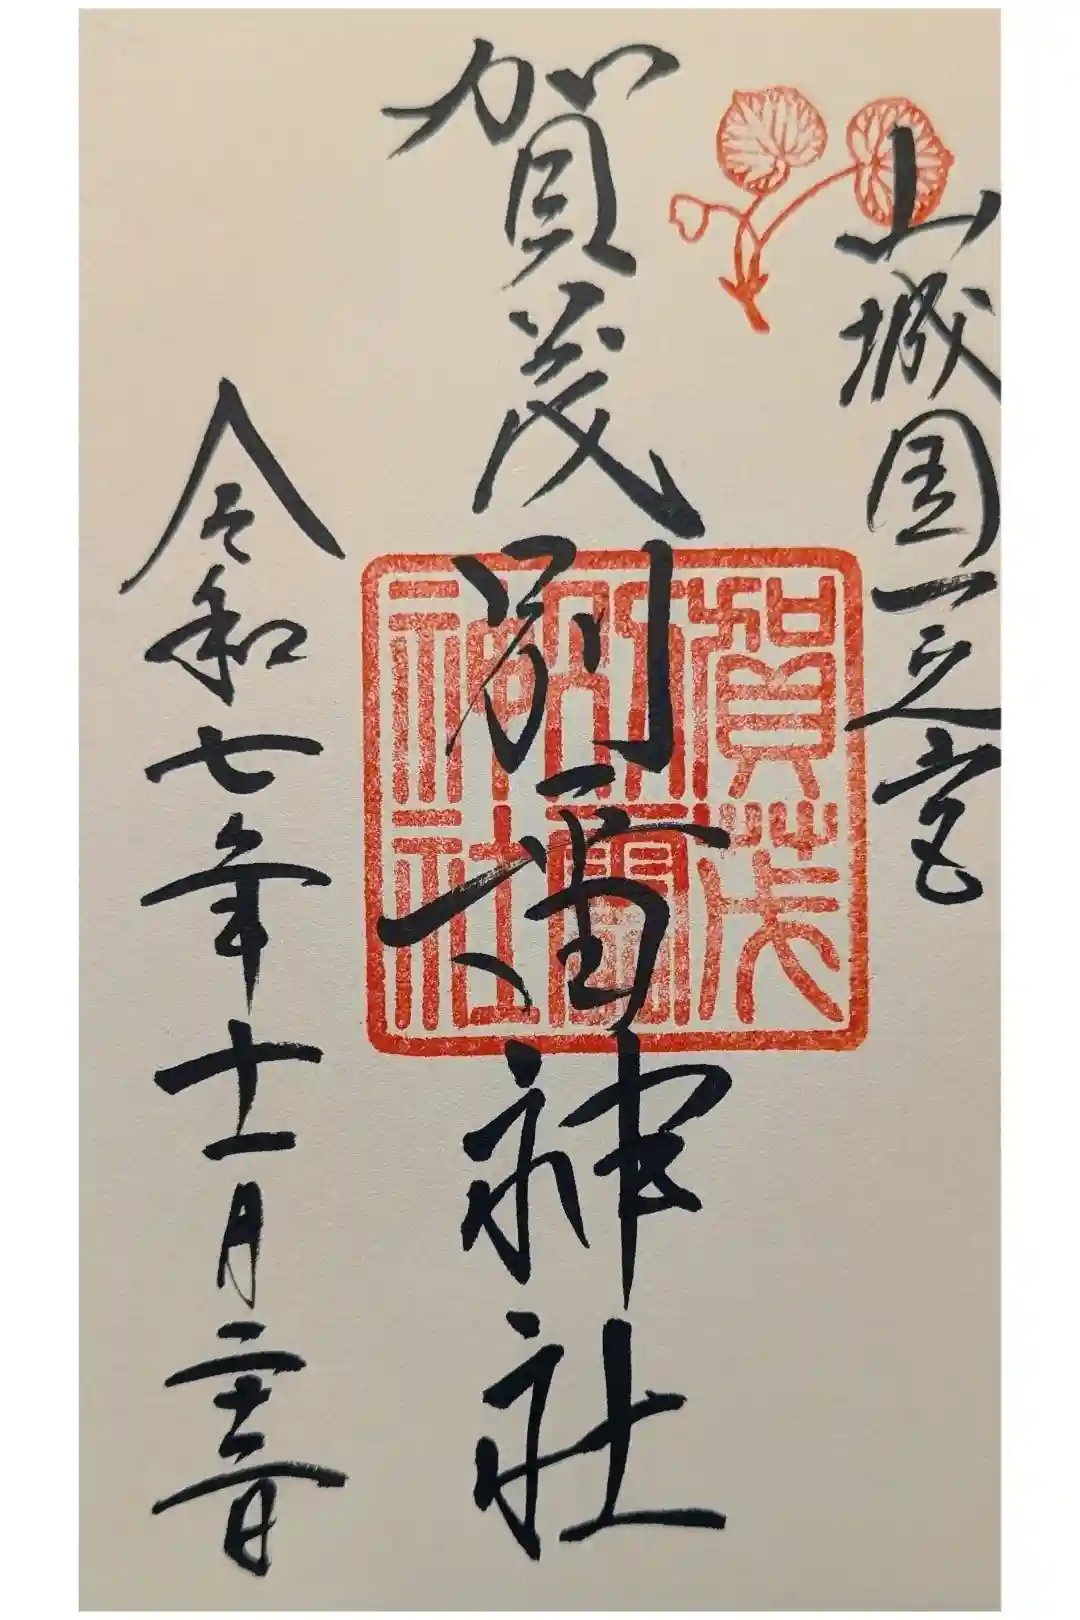 山城国一之宮
賀茂別雷神社
賀茂
別雷
神社
令和七年十一月二十三日